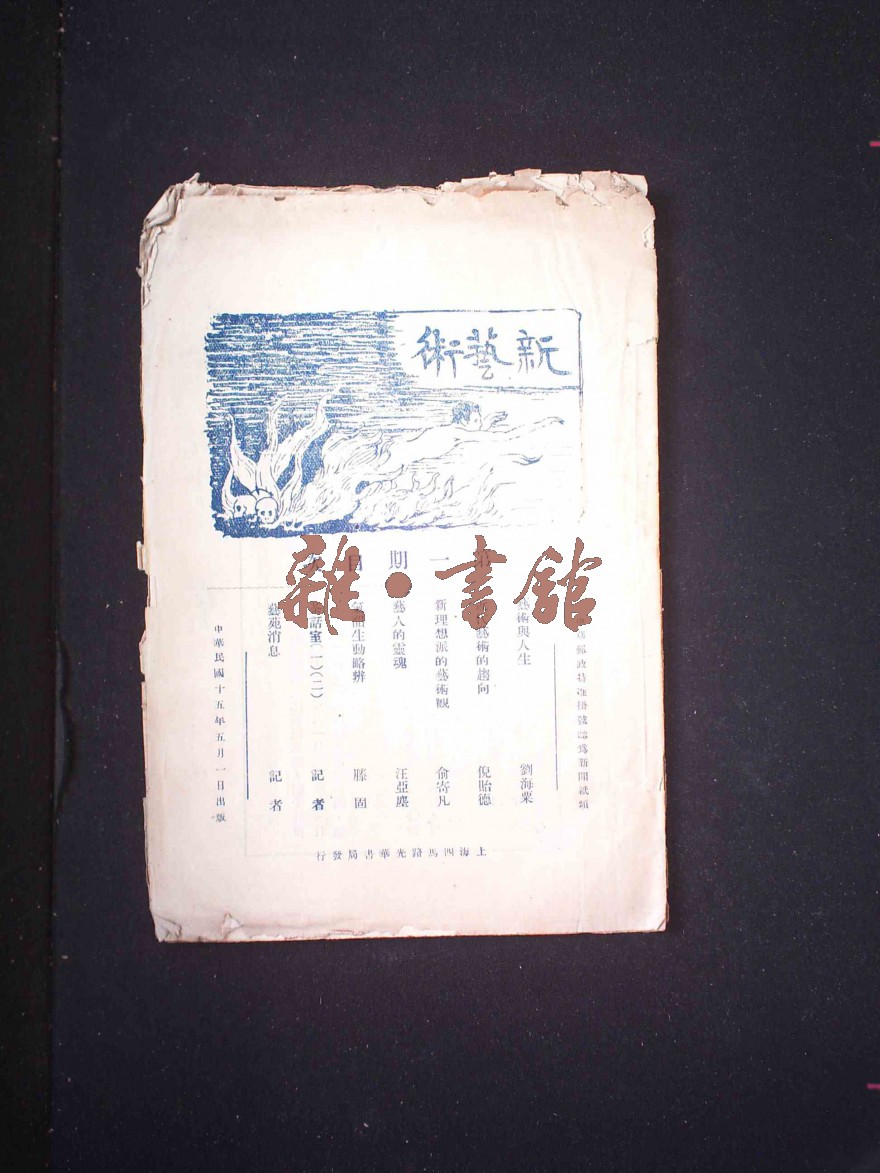 新藝術
第一期目次
郵政特准掛號認爲新聞紙類
藝術與人生 劉海粟
藝術的趨向 倪貽德
新理想派的藝術觀 俞寄凡
藝人的靈魂 汪亞塵
生動略辨 滕固
話室(一)(二) 記者
藝苑消息 記者
中華民國十五年五月一日出版
上海四馬路光華書局發行
雜·書館